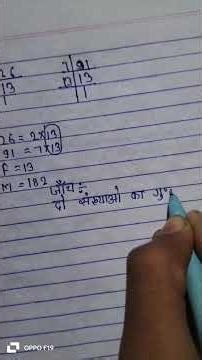 26
7 | 91
13 | 13
1
1
26 = 2×13
91 = 7×13
F = 13
M = 182
जाँच :-
दो संख्याओ का गुण
OPPO F19